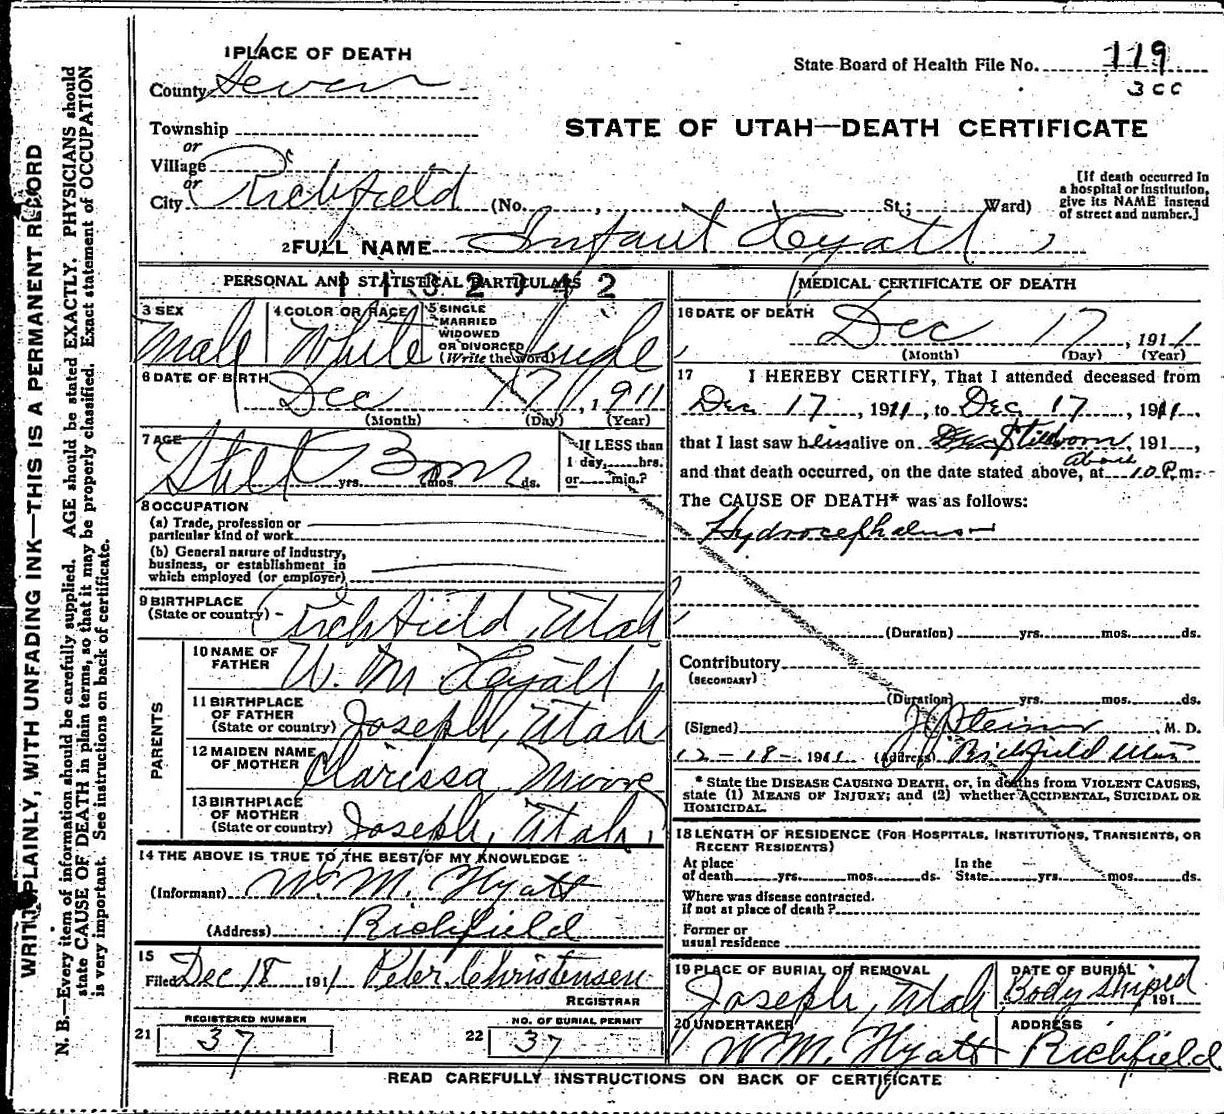 1 PLACE OF DEATH
County Sevier
State Board of Health File No. 119
300
Township
or
Village
or
City Richfield (No. , St.; Ward)
STATE OF UTAH—DEATH CERTIFICATE
[If death occurred in
a hospital or institution,
give its NAME instead
of street and number.]
2 FULL NAME Infant Hyatt
PERSONAL AND STATISTICAL PARTICULARS
3 SEX Male
4 COLOR OR RACE White
5 SINGLE
MARRIED
WIDOWED
OR DIVORCED
(Write the word) Single
6 DATE OF BIRTH Dec 17, 1911
(Month) (Day) (Year)
7 AGE Still Born
yrs. mos. ds.
If LESS than
1 day, hrs.
or min.?
8 OCCUPATION
(a) Trade, profession or
particular kind of work
(b) General nature of industry,
business, or establishment in
which employed (or employer)
9 BIRTHPLACE
(State or country) Richfield, Utah
PARENTS
10 NAME OF
FATHER W. M Hyatt
11 BIRTHPLACE
OF FATHER
(State or country) Joseph, Utah
12 MAIDEN NAME
OF MOTHER Clarissa Moore
13 BIRTHPLACE
OF MOTHER
(State or country) Joseph, Utah
14 THE ABOVE IS TRUE TO THE BEST OF MY KNOWLEDGE
(Informant) W. M. Hyatt
(Address) Richfield
15
Filed Dec 18 1911 Peter Christensen
REGISTRAR
REGISTERED NUMBER
21 37
NO. OF BURIAL PERMIT
22 37
MEDICAL CERTIFICATE OF DEATH
16 DATE OF DEATH Dec 17, 1911
(Month) (Day) (Year)
17 I HEREBY CERTIFY, That I attended deceased from
Dec 17, 1911, to Dec 17, 1911,
that I last saw him alive on Stillborn, 191
and that death occurred, on the date stated above, at about 10 P.m.
The CAUSE OF DEATH* was as follows:
Hydrocephalus
(Duration) yrs. mos. ds.
Contributory
(SECONDARY)
(Duration) yrs. mos. ds.
(Signed) J. J. Steiner, M. D.
12-18-1911 (Address) Richfield Utah
* State the DISEASE CAUSING DEATH, or, in deaths from VIOLENT CAUSES,
state (1) MEANS OF INJURY; and (2) whether ACCIDENTAL, SUICIDAL OR
HOMICIDAL.
18 LENGTH OF RESIDENCE (FOR HOSPITALS, INSTITUTIONS, TRANSIENTS, OR
RECENT RESIDENTS)
At place
of death yrs. mos. ds.
In the
State yrs. mos. ds.
Where was disease contracted.
if not at place of death?
Former or
usual residence
19 PLACE OF BURIAL OR REMOVAL
Joseph, Utah
DATE OF BURIAL
Body Shiped 191
20 UNDERTAKER
W. M. Hyatt
ADDRESS
Richfield
READ CAREFULLY INSTRUCTIONS ON BACK OF CERTIFICATE
WRITE PLAINLY, WITH UNFADING INK—THIS IS A PERMANENT RECORD
N. B.—Every item of information should be carefully supplied. AGE should be stated EXACTLY. PHYSICIANS should
state CAUSE OF DEATH in plain terms, so that it may be properly classified. Exact statement of OCCUPATION
is very important. See instructions on back of certificate.